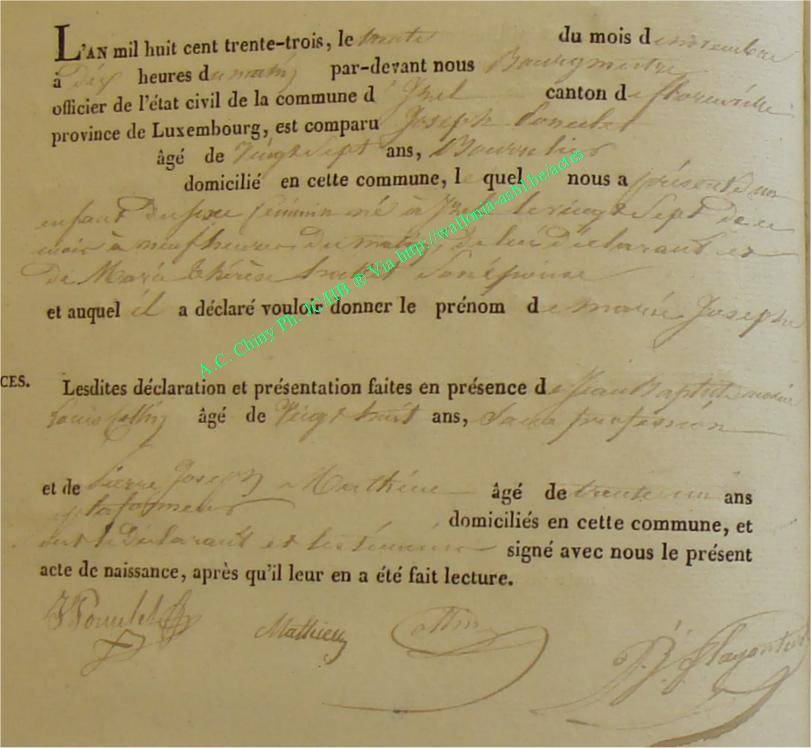 L'AN mil huit cent trente-trois, le trente du mois de novembre
à dix heures du matin par-devant nous Bourgmestre
officier de l'état civil de la commune d'Izel canton de florenville
province de Luxembourg, est comparu Joseph Poncelet
âgé de vingt sept ans, Bourrelier
domicilié en cette commune, le quel nous a présenté un
enfant du sexe féminin né à Izel le vingt sept de ce
mois à neuf heures du matin, de lui déclarant et
de Marie thérèse son épouse
et auquel il a déclaré vouloir donner le prénom de marie Joseph
CES. Lesdites déclaration et présentation faites en présence de Jean Baptiste
Louis Collin âgé de vingt huit ans, sans profession
et de pierre Joseph Mathieu âgé de trente un ans
plafonneur
domiciliés en cette commune, et
ont le déclarant et les témoins signé avec nous le présent
acte de naissance, après qu'il leur en a été fait lecture.
Poncelet Mathieu Collin
A.C. Chiny Ph. K-HB ® Via http://wallonia-asbl.be/actes